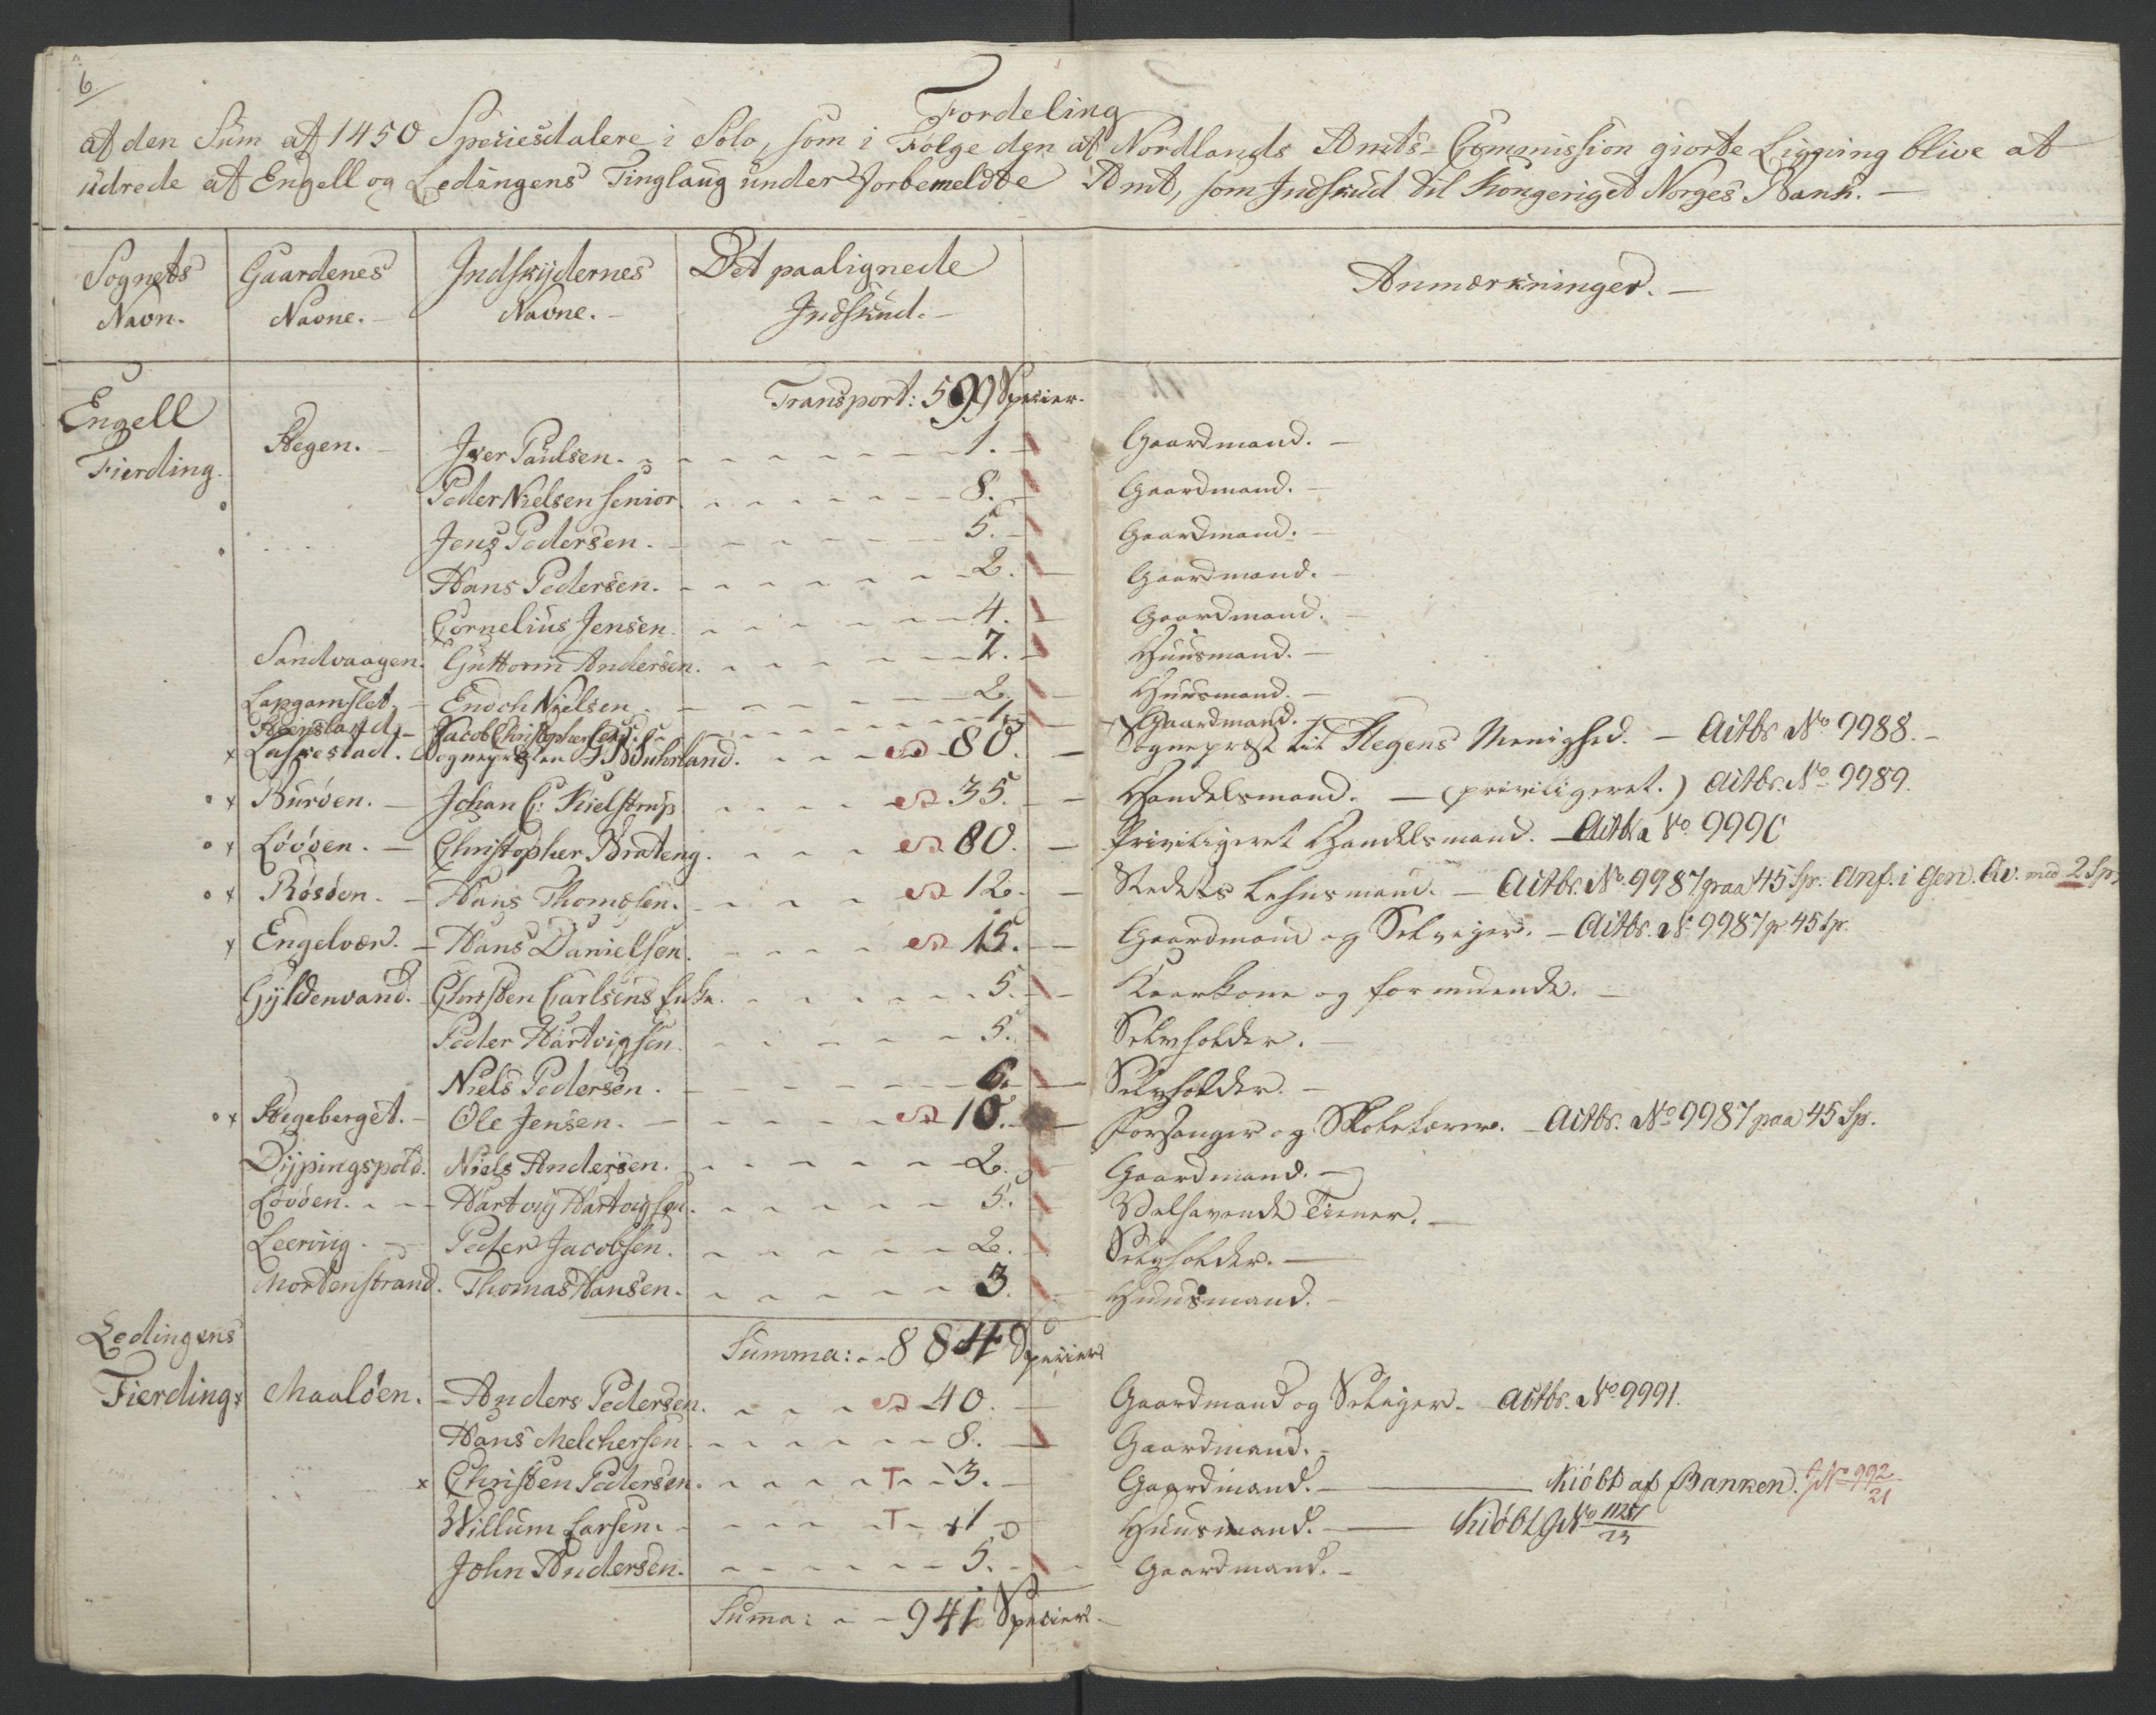 6.
Fordeling
af den Sum af 1450 Speciesdalere i Sølv, som i Følge den af Nordlands Amts-Commission giorte Ligning blive at
udrede af Engell og Lødingens Tinglaug under forbemeldte Amt, som Indskud til Kongeriget Norges Bank. —
Sognets Navn. | Gaardenes Navne. — | Indskydernes Navne. — | Det paalignede Indskud. — | Anmærkninger. —
Transport: 599 Specier.
Engell Fierding. | Stegen. — | Iver Paulsen. | 1. | Gaardmand. —
Peder Nielsen senior. | 8. | Gaardmand. —
Jens Pedersen. | 5. | Gaardmand. —
Hans Pedersen. | 2. | Gaardmand. —
Cornelius Jensen. | 4. | Gaardmand. —
Sandvaagen. | Guttorm Andersen. | 2. | Huusmand. —
Lapgamslet. — | Enoch Nielsen. | 2. | Huusmand. —
Jacob Christophersen. | 1. | Gaardmand. —
x Laskestad. | Sognepræsten | 80. | Sognepræst til Stegens Menighed. — Actbr. No 9988. —
o x Burøen. — | Johan C: Kielstrup | 35. | Handelsmand. — (priviligeret.) Actbr. No 9989.
o x Løvøen. — | Christopher Brateng. | 80. | Priviligeret Handelsmand. — No 9990
o x Røsøen. — | Hans Thomesen. | 12. | Stedets Lehnsmand. — Actbr. No 9987 paa 45 Sp. Anf. i Gen. med 2 Sp.
x Engelvær. — | Hans Danielsen. | 15. | Gaardmand og Selveyer. — Actbr. No 9987 p 45 Sp.
Gyldenvand. | Christen Carlsens Enke. | 5. | Kaarkone og formuende. —
Peder Hartvigsen. | 5. | Selvholder. —
Niels Pedersen. | 6. | Selvholder. —
o x Stegeberget. — | Ole Jensen. — | 10. | Forsanger og Skolelærer. — Actbr. No 9987 paa 45 Sp.
Dypingspold. | Niels Andersen. | 2. | Gaardmand. —
Løvøen. | Hartvig Hartvigsen. | 5. | Velhavende Tiener. —
Leervig. — | Peder Jacobsen. | 2. | Selvholder. —
Mortenstrand. | Thomas Hansen. | 3. | Huusmand. —
Summa: 884 Specier
Lødingens Fierding x | Maaløen. | Anders Pedersen. | 40. | Gaardmand og Seleyer. — Actbr. No 9991.
Hans Melchersen | 8. | Gaardmand. —
x Christen Pedersen. | T 3. | Gaardmand. — Kiöbt af Banken. No 992/21
Willum Larsen. | T 1 | Huusmand. — Kiöbt No
John Andersen. | 5. | Gaardmand. —
Summa: 941 Specier.